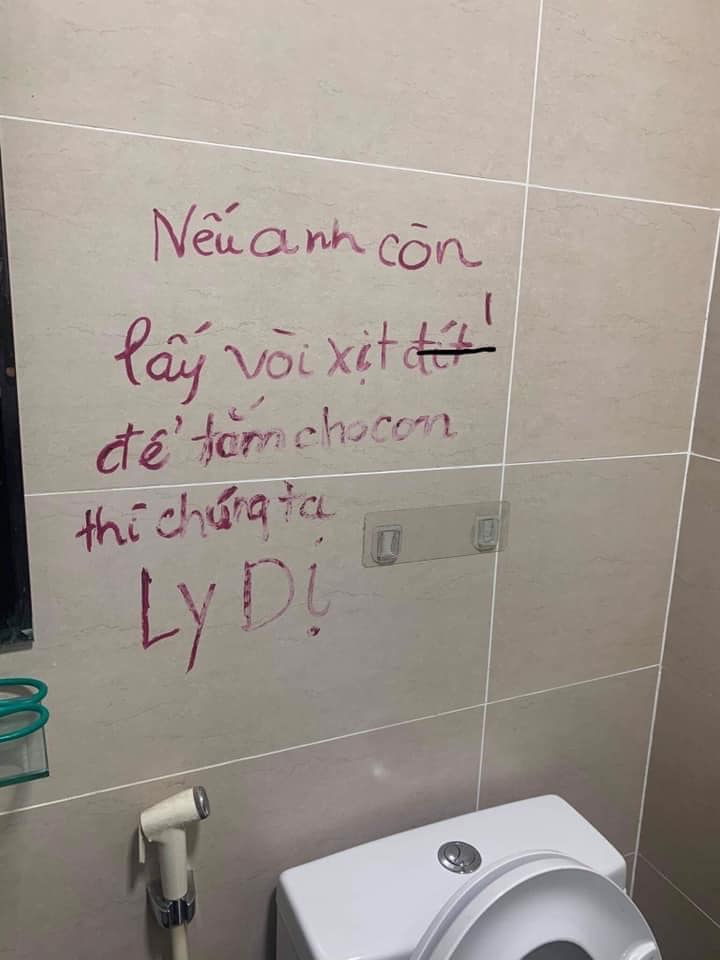 Nếu anh còn
lấy vòi xịt đít
để tắm cho con
thì chúng ta
LY DỊ